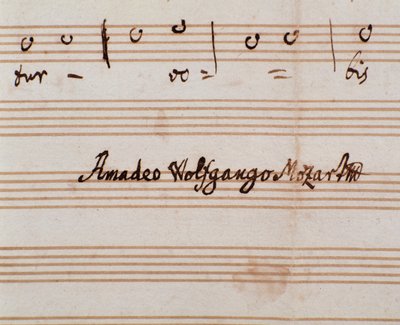 tur - vo = = bis
Amadeo Wolfgango Mozart